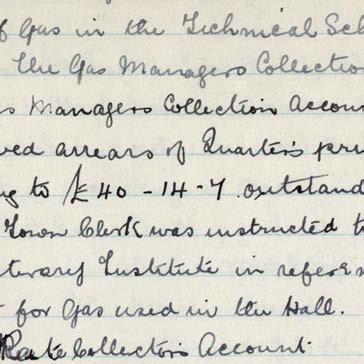 of Gas in the Technical Sch
The Gas Managers Collectio
s Managers Collection Accoun
ved arrears of Quarter's pri
ng to £40-14-7 outstand
Town Clerk was instructed t
terary Institute in referen
for Gas used in the Hall.
Rate Collectors Account.